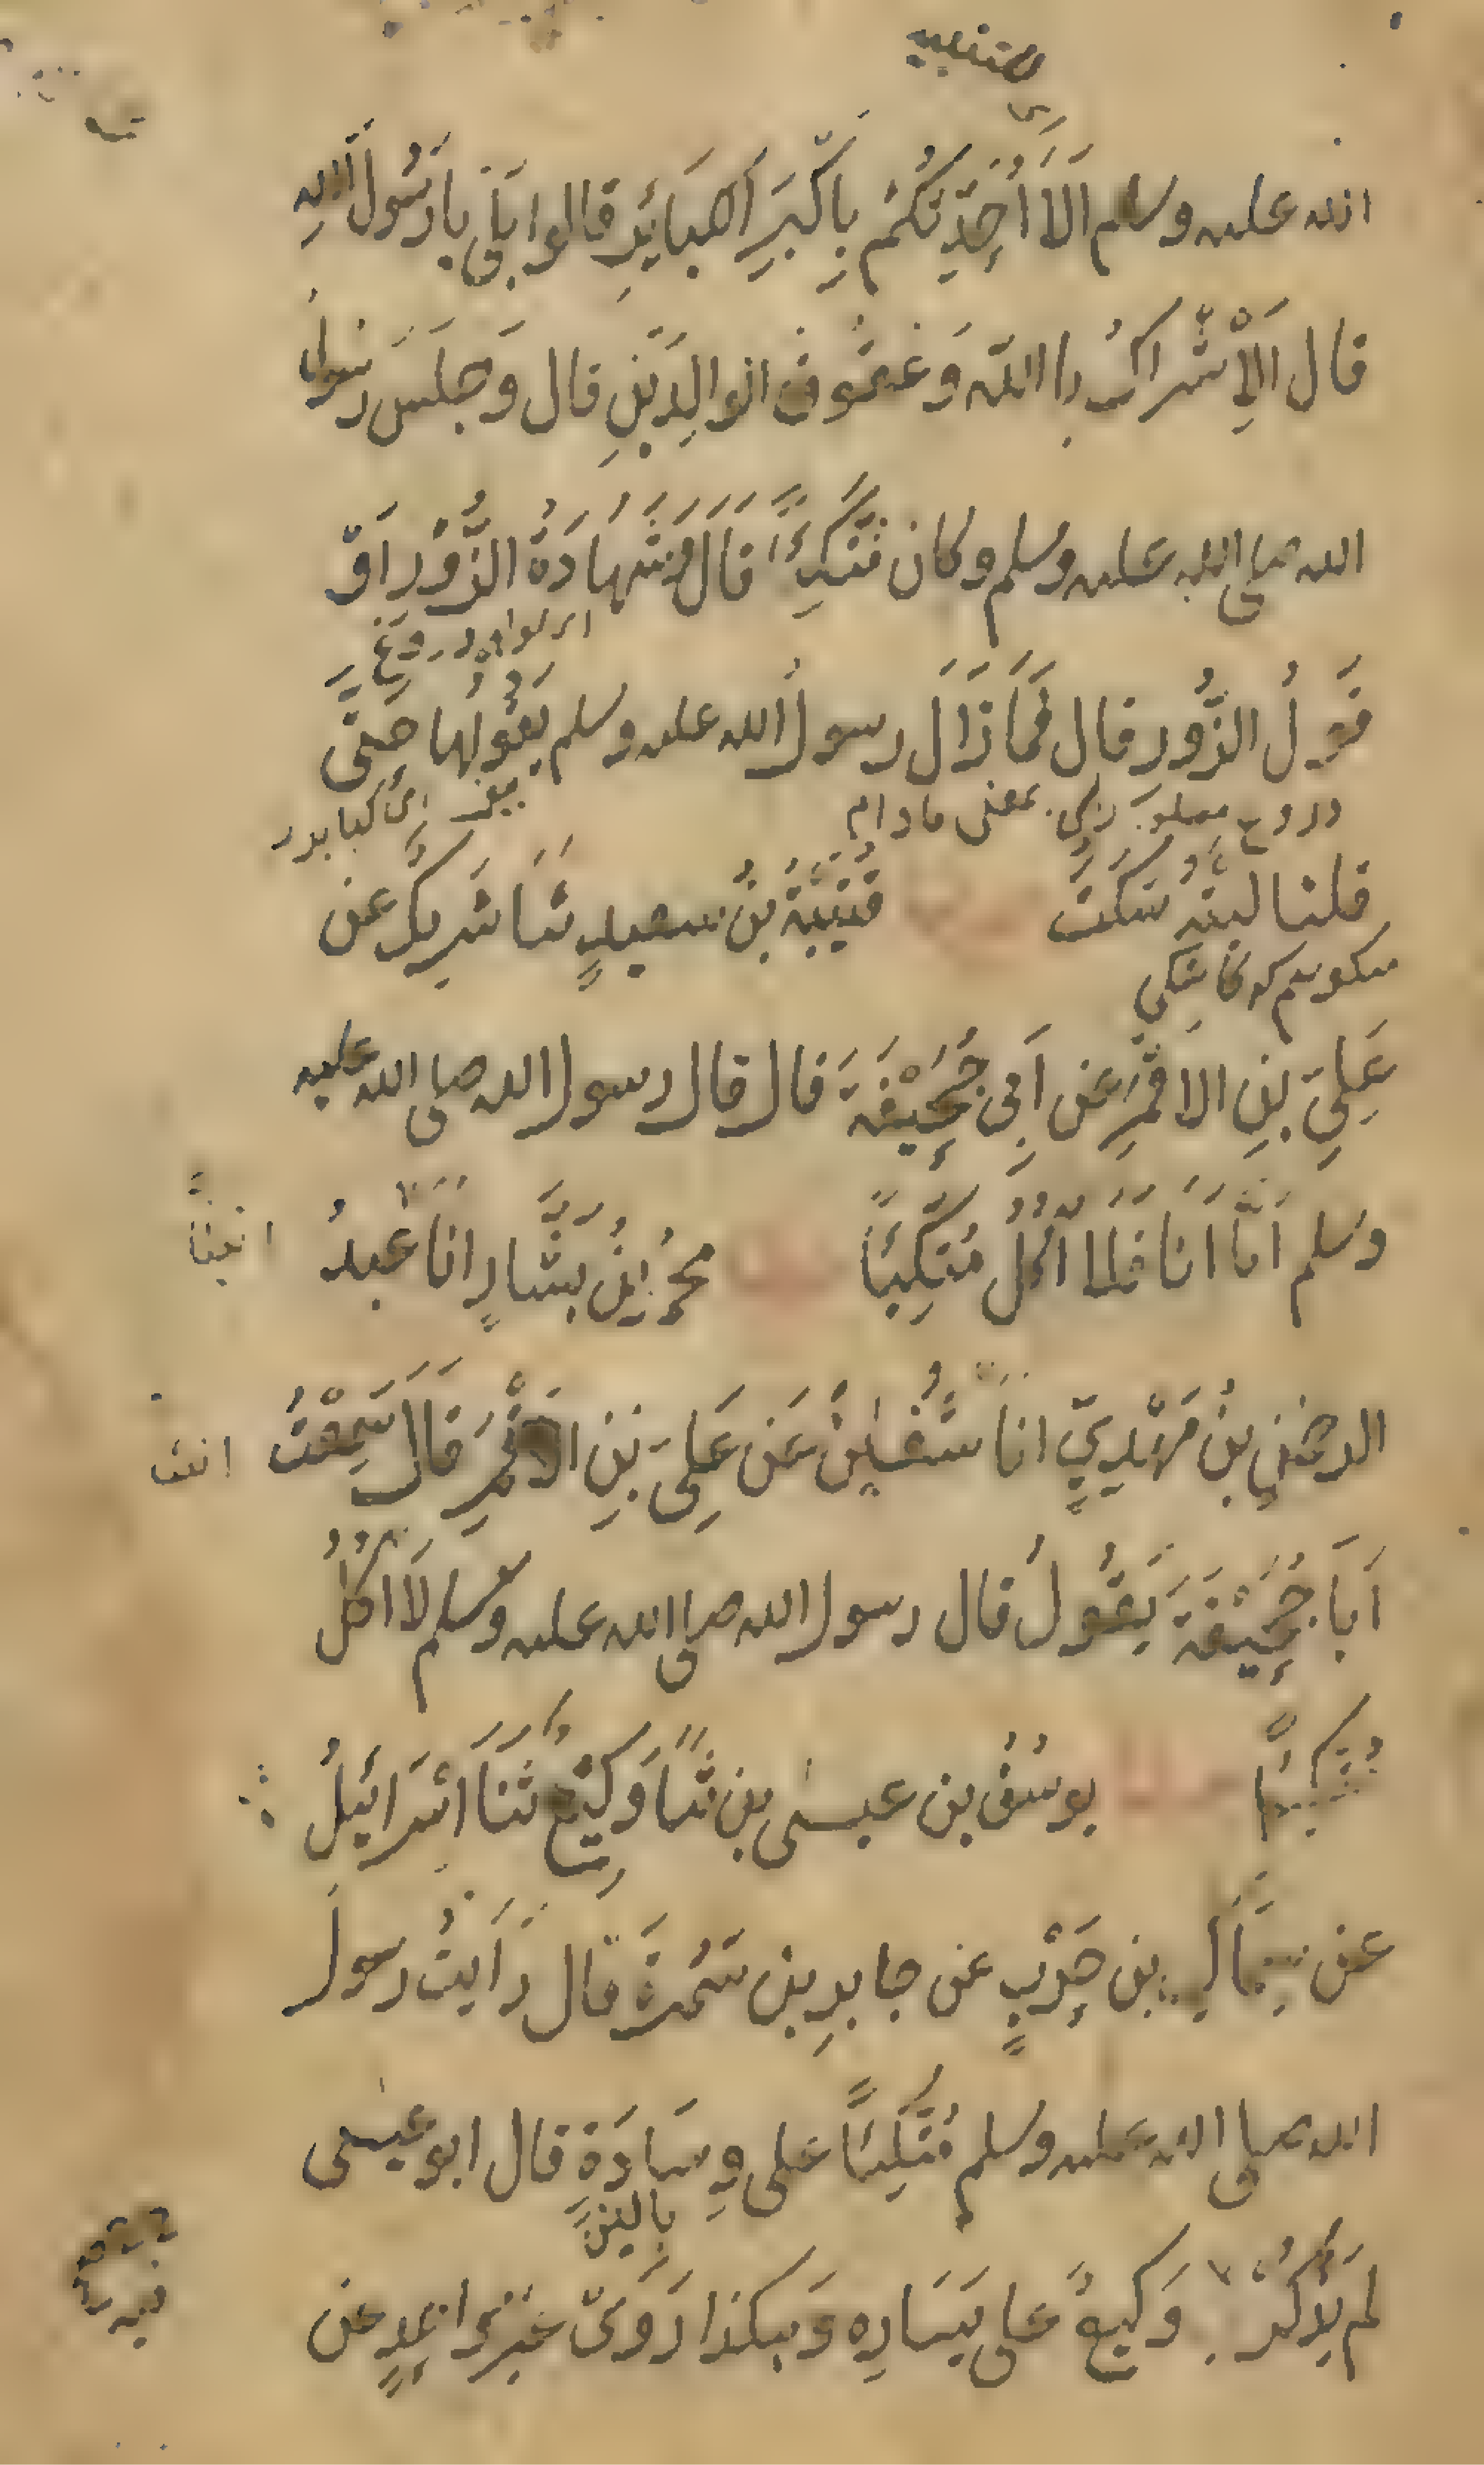 الله عليه وسلم اَلاَ اُحَدِّثُكُمْ بِاَكْبَرِ اَلْكَبَائِرِ قالوا بَلٰى يا رَسُولَ اللهِ
قال اَلْاِشْراكُ باالله وَعُقُوقُ الوالِدَيْنِ قال وَجلَسَ رسولُ
الله صلى الله عليه وسلم وكان مُتَّكِئًا قَالَ وَشَهَادَةُ الزُّوْرِ اَوْ
قَولُ الزُّورِ قال فَمَا زَالَ رسولُ الله عليه وسلم يَقُوْلُها حَتّٰى
دروغ بمعنى مادام
قلنا ليتَهُ سَكَتَ قُتَيْبَةُ بنُ سعيدٍ ثَنَا شَرِيكٌ عن
عَلِيِّ بنِ الاقْمَرِ عَن اَبِى جُحَيْفَةَ قال قال رسول الله صلى الله عليه
وسلم اَمَّا اَنَا فَلَا اٰكُلُ مُتَّكِئًا محمدُ ابنُ بَشَّارٍ انَا عَبدُ
الرحمٰنِ بنُ مَهْدِيٍّ انَا سُفْيٰنُ عَن عَلِىِّ بْنِ الاَقْمَرِ قَالَ سَمِعْتُ
اَبَا جُحَيْفَةَ يَقُولُ قال رسول الله صلى الله عليه وسلم لَا اٰكُلُ
مُتَّكِئًا يوسُفُ بن عيسٰى بن ثَنَا وَكِيْعٌ ثَنَا اِسْرَائِيلُ
عن سِمَاكِ بن حَرْبٍ عن جابرِ بن سَمُرَةَ قال رَاَيتُ رسولَ
الله صلى الله عليه وسلم مُتَّكِئًا على وِسَادَةٍ قال ابو عيسٰى
بالين
لم يَذْكُرْ وَكِيعٌ على يَسَارِه وَهكذا رَوٰى غيرُ واحِدٍ عن